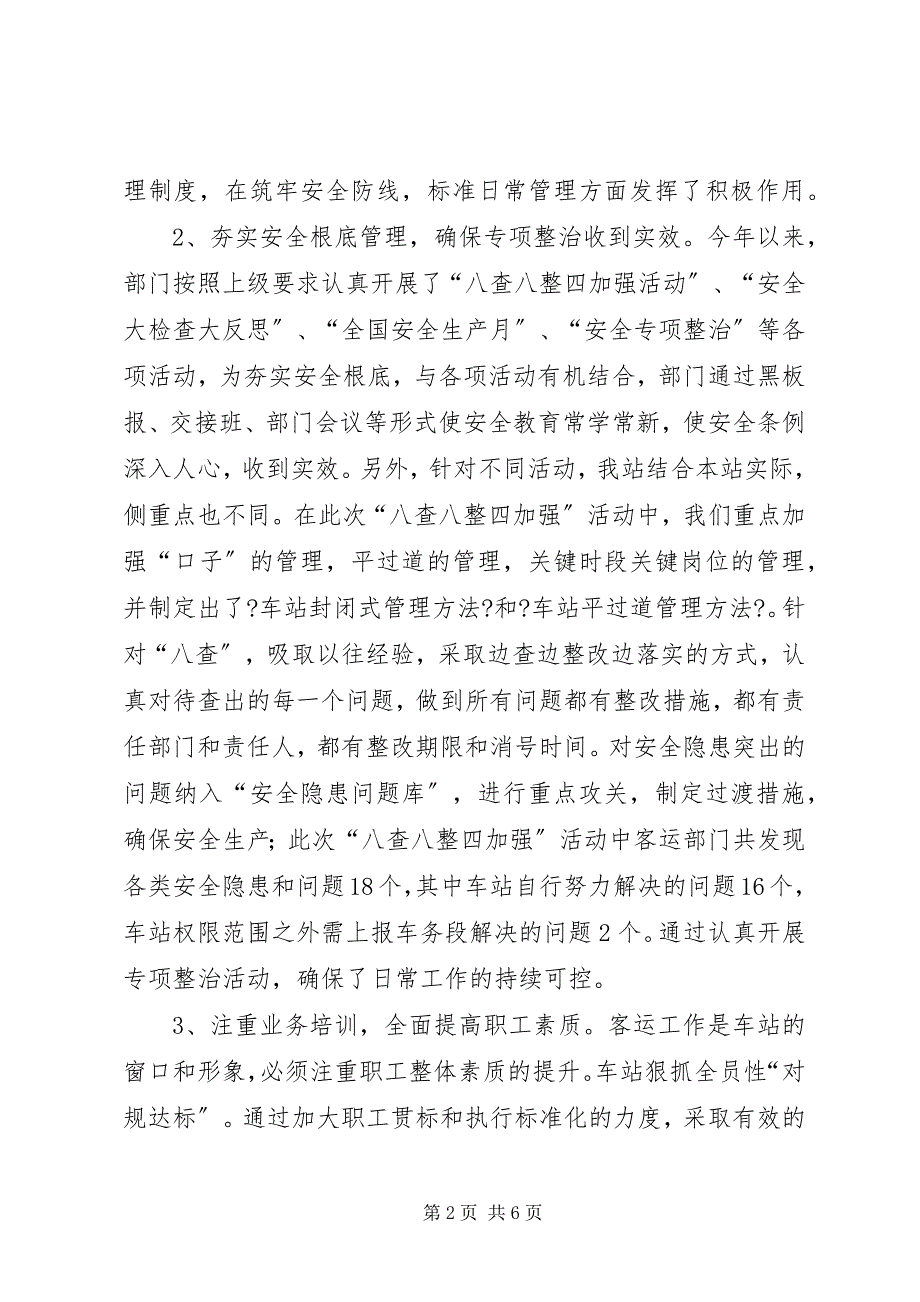 理制度，在筑牢安全防线，标准日常管理方面发挥了积极作用。
2、夯实安全根底管理，确保专项整治收到实效。今年以来，
部门按照上级要求认真开展了“八查八整四加强活动〞、“安全
大检查大反思〞、“全国安全生产月〞、“安全专项整治〞等各
项活动，为夯实安全根底，与各项活动有机结合，部门通过黑板
报、交接班、部门会议等形式使安全教育常学常新，使安全条例
深入人心，收到实效。另外，针对不同活动，我站结合本站实际，
侧重点也不同。在此次“八查八整四加强〞活动中，我们重点加
强“口子〞的管理，平过道的管理，关键时段关键岗位的管理，
并制定出了?车站封闭式管理方法?和?车站平过道管理方法?。针
对“八查〞，吸取以往经验，采取边查边整改边落实的方式，认
真对待查出的每一个问题，做到所有问题都有整改措施，都有责
任部门和责任人，都有整改期限和消号时间。对安全隐患突出的
问题纳入“安全隐患问题库〞，进行重点攻关，制定过渡措施，
确保安全生产；此次“八查八整四加强〞活动中客运部门共发现
各类安全隐患和问题18个，其中车站自行努力解决的问题16个，
车站权限范围之外需上报车务段解决的问题2个。通过认真开展
专项整治活动，确保了日常工作的持续可控。
3、注重业务培训，全面提高职工素质。客运工作是车站的
窗口和形象，必须注重职工整体素质的提升。车站狠抓全员性“对
规达标〞。通过加大职工贯标和执行标准化的力度，采取有效的
第2页 共6页